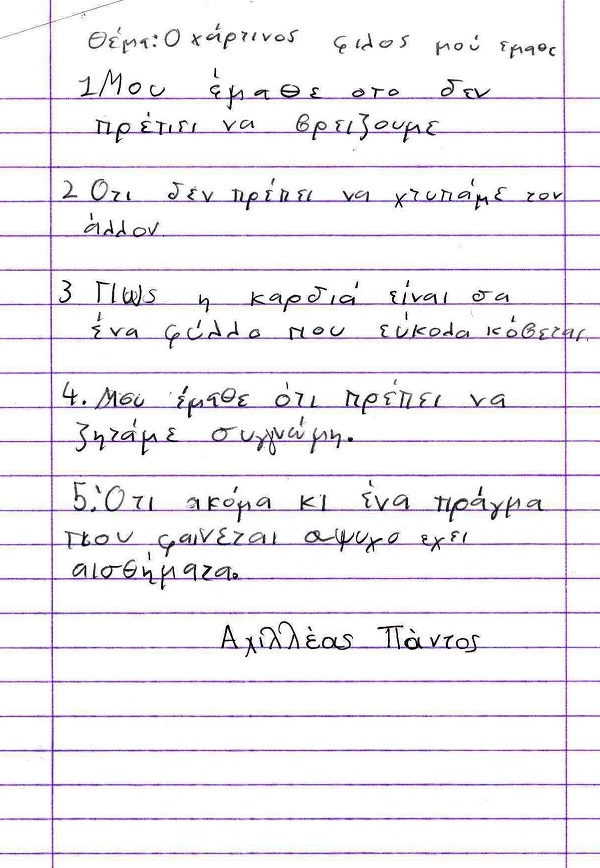 Θέμα: Ο χάρτινος φιλος μού εμαθε
1 Μου έμαθε οτο δεν
πρέπει να βρειζουμε
2 Οτι δεν πρέπει να χτυπάμε τον
άλλον
3 Πως η καρδιά είναι σα
ένα φύλλο που εύκολα κόβεται.
4. Μου έμαθε ότι πρέπει να
ζητάμε συγγνώμη.
5. Ότι ακόμα κι ένα πράγμα
που φαινεται αψυχο εχει
αισθήματα.
Αχιλλέας Πàντος